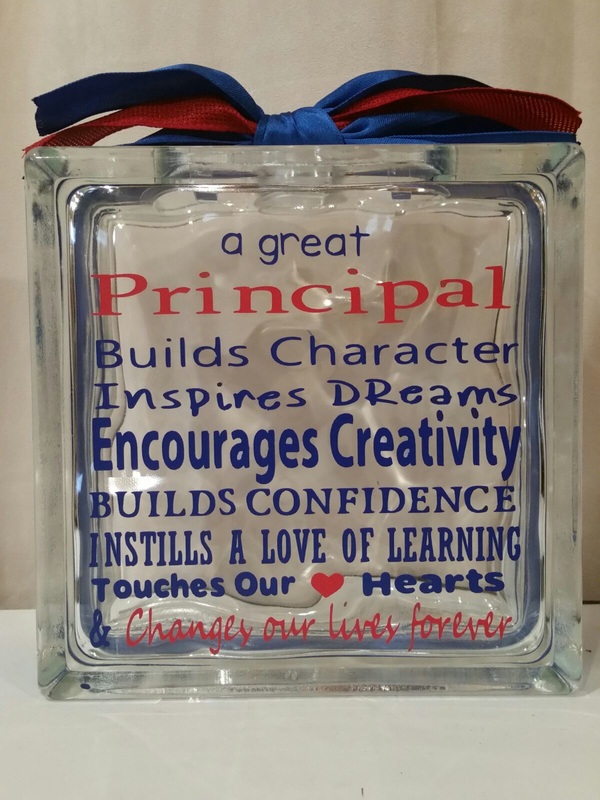 a great
Principal
Builds Character
Inspires DReams
Encourages Creativity
BUILDS CONFIDENCE
INSTILLS A LOVE OF LEARNING
Touches Our ❤ Hearts
& Changes our lives forever